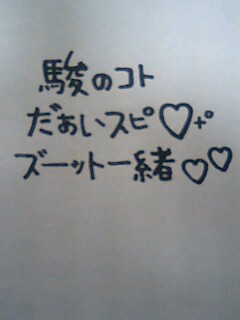 駿のコト
だぁいスピ♡+°
ズーット一緒♡♡